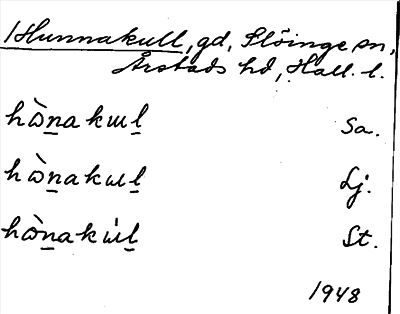 Hunnakull, gd, Slöinge sn,
Årstads hd, Hall. l.
hὼn̲akɯl̲ Sa.
hὼn̲akɯl̲ Lj.
hὼn̲akɯ́l̲ St.
1948